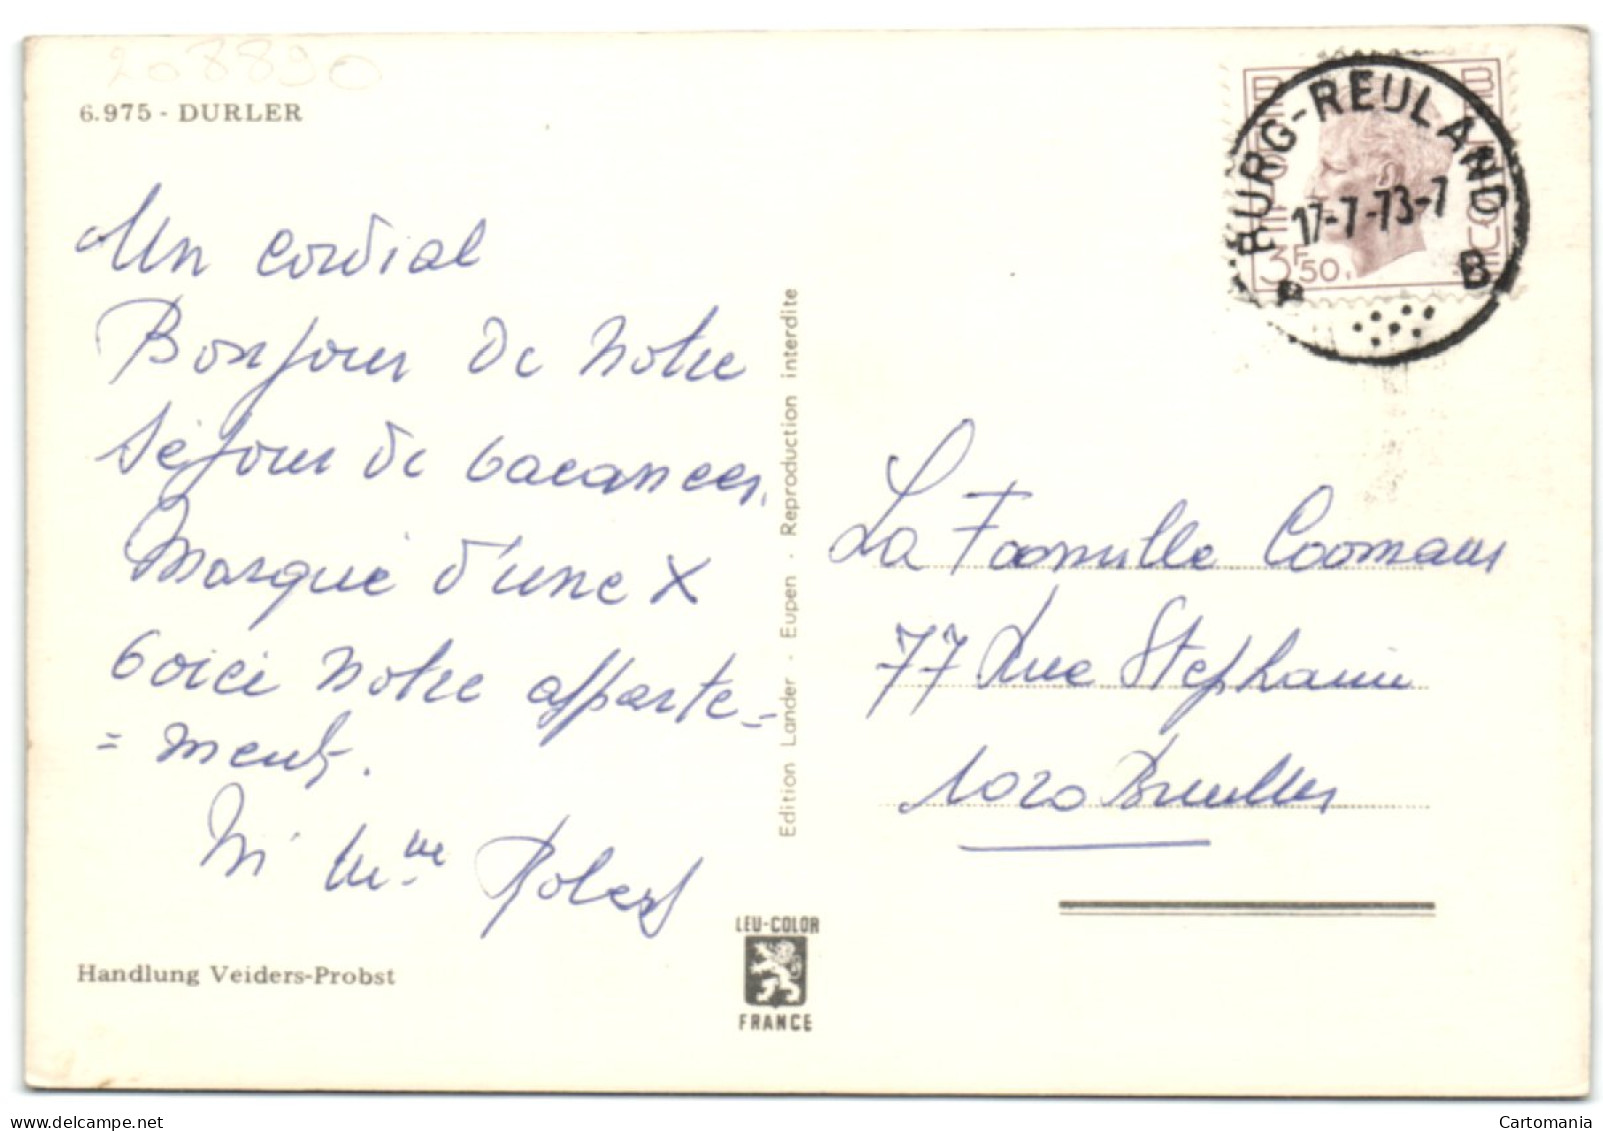 208830
6.975 - DURLER
Un cordial
Bonjour de notre
séjour de vacances.
Marqué d'une X
voici notre apparte=
=ment.
Mr Mme Robert
Handlung Veiders-Probst
Edition Lander · Eupen · Reproduction interdite
LEU-COLOR
FRANCE
BELGIE BELGIQUE
3F50
BURG-REULAND
17-7-73-7
B B
La Famille Coomans
77 Rue Stephanie
1020 Bruxelles
Cartomania